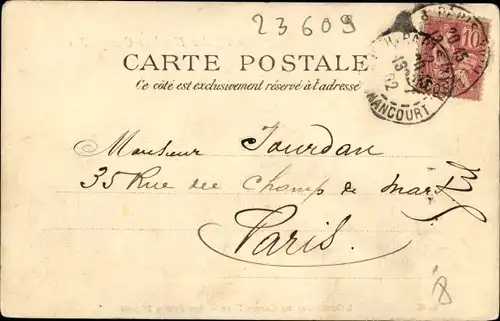 23609
CARTE POSTALE
Ce côté est exclusivement réservé à l'adresse
10
13
02
NANCOURT
Monsieur Jourdan
35 Rue du Champ de Mars
Paris.
8